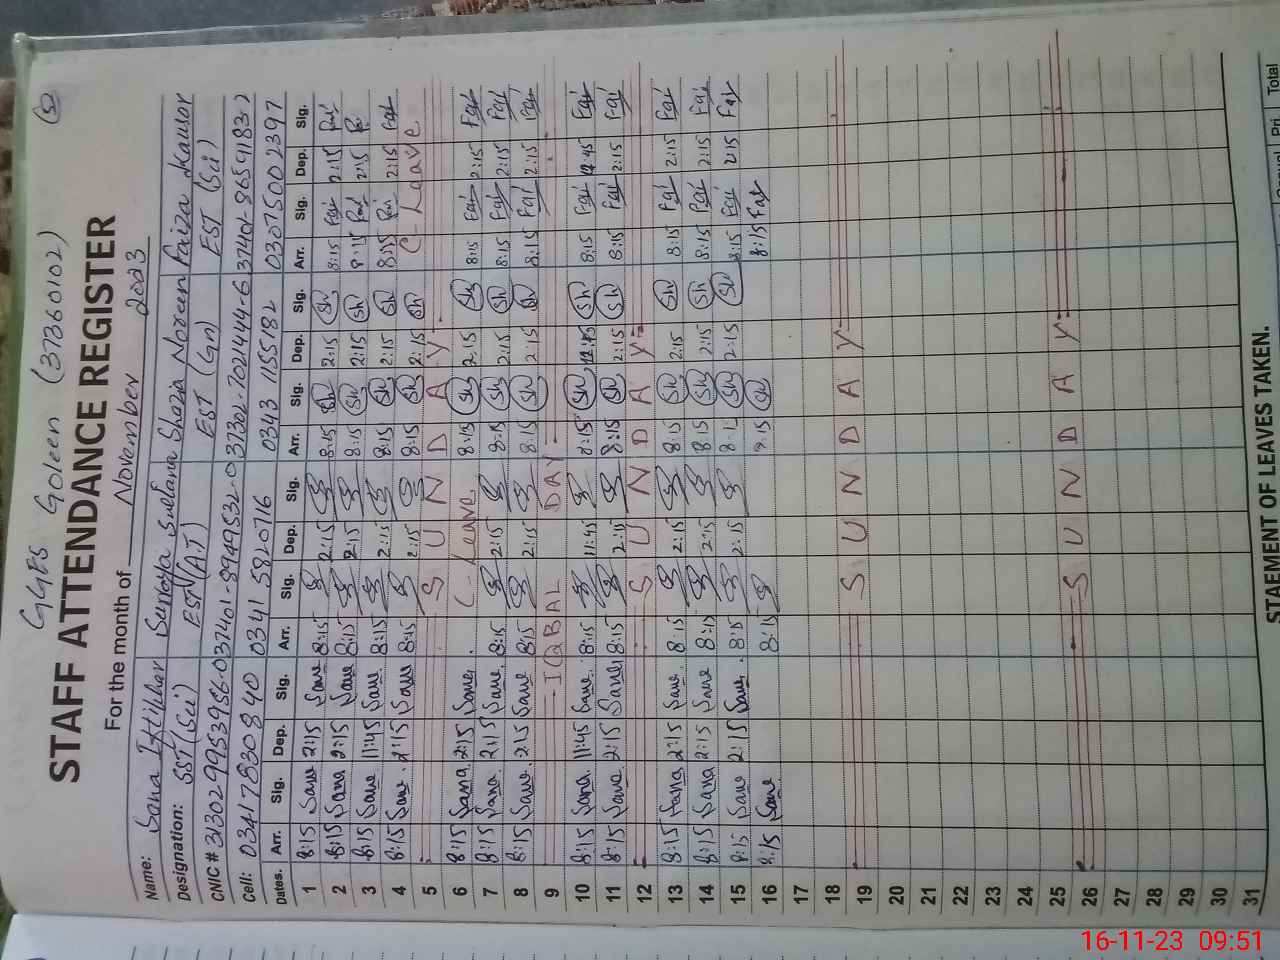 GGES Goleen (37360102)
STAFF ATTENDANCE REGISTER
For the month of November 2023
Name: Sana Iftikhar Sultana Shazia Noreen Faiza Kausar
Designation: SST (Sci) EST (A.T) EST (Gn) EST (Sci)
CNIC # 37401-8949532-0 37302-7021444-6 37401-8659183-2
Cell: 03417830840 0341 5820716 0343 1155182 03075002397
Dates. Arr. Sig. Dep. Sig. Arr. Sig. Dep. Sig. Arr. Sig. Dep. Sig. Arr. Sig. Dep. Sig.
1 8:15 Sana 2:15 Sana 8:15 2:15 8:15 Sh 2:15 Sh 8:15 Fai 2:15 Fai
2 8:15 Sana 2:15 Sana 8:15 2:15 8:15 Sh 2:15 Sh 8:15 Fai 2:15
3 8:15 Sana 11:45 Sana 8:15 2:15 8:15 Sh 2:15 Sh 8:15 Fai 2:15 Fai
4 8:15 Sana 2:15 Sana 8:15 2:15 8:15 Sh 2:15 Sh C- Leave
5 S U N D A Y
6 8:15 Sana 2:15 Sana C- Leave 8:15 Sh 2:15 Sh 8:15 Fai 2:15 Fai
7 8:15 Sana 2:15 Sana 8:15 2:15 8:15 Sh 2:15 Sh 8:15 Fai 2:15 Fai
8 8:15 Sana 2:15 Sana 8:15 2:15 8:15 Sh 2:15 Sh 8:15 Fai 2:15 Fai
9 IQBAL DAY
10 8:15 Sana 11:45 Sana 8:15 11:45 8:15 Sh Sh 8:15 Fai Fai
11 8:15 Sana 2:15 Sana 8:15 2:15 8:15 Sh 2:15 Sh 8:15 Fai 2:15 Fai
12 S U N D A Y
13 8:15 Sana 2:15 Sana 8:15 2:15 8:15 Sh 2:15 Sh 8:15 Fai 2:15 Fai
14 8:15 Sana 2:15 Sana 8:15 2:15 8:15 Sh 2:15 Sh 8:15 Fai 2:15 Fai
15 8:15 Sana 2:15 Sana 8:15 2:15 8:15 Sh 2:15 Sh 8:15 Fai 2:15 Fai
16 8:15 Sana 8:15 8:15 Sh 8:15 Fai
17
18
19 S U N D A Y
20
21
22
23
24
25
26 S U N D A Y
27
28
29
30
31
STATEMENT OF LEAVES TAKEN.
Total
16-11-23 09:51